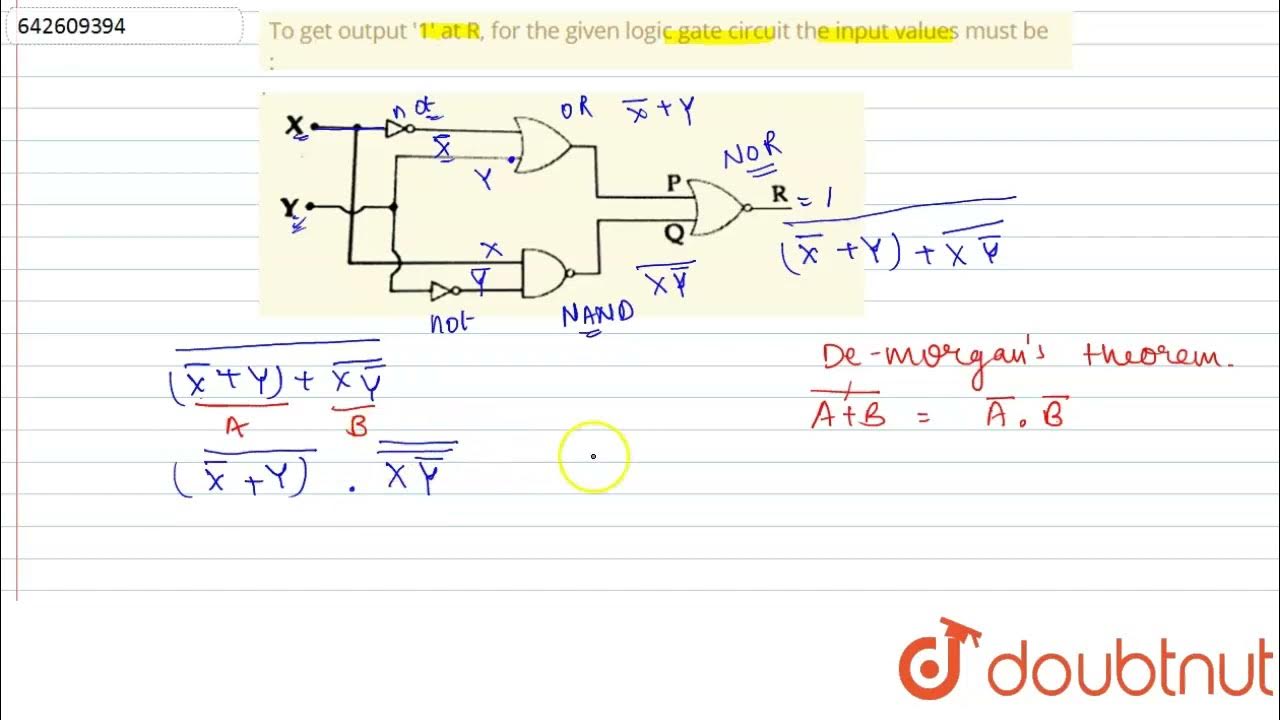 642609394
To get output '1' at R, for the given logic gate circuit the input values must be
:
X
not
X̅
OR
X̅ + Y
Y
NOR
P
R = 1
Y
Q
X
Y̅
not
NAND
$\overline{X\overline{Y}}$
$\overline{(\overline{X} + Y) + \overline{X\overline{Y}}}$
$\overline{(\overline{X} + Y) + \overline{X\overline{Y}}}$
A B
$(\overline{\overline{X} + Y}) . \overline{\overline{X\overline{Y}}}$
De-morgan's theorem.
$\overline{A + B} = \overline{A} . \overline{B}$
doubtnut